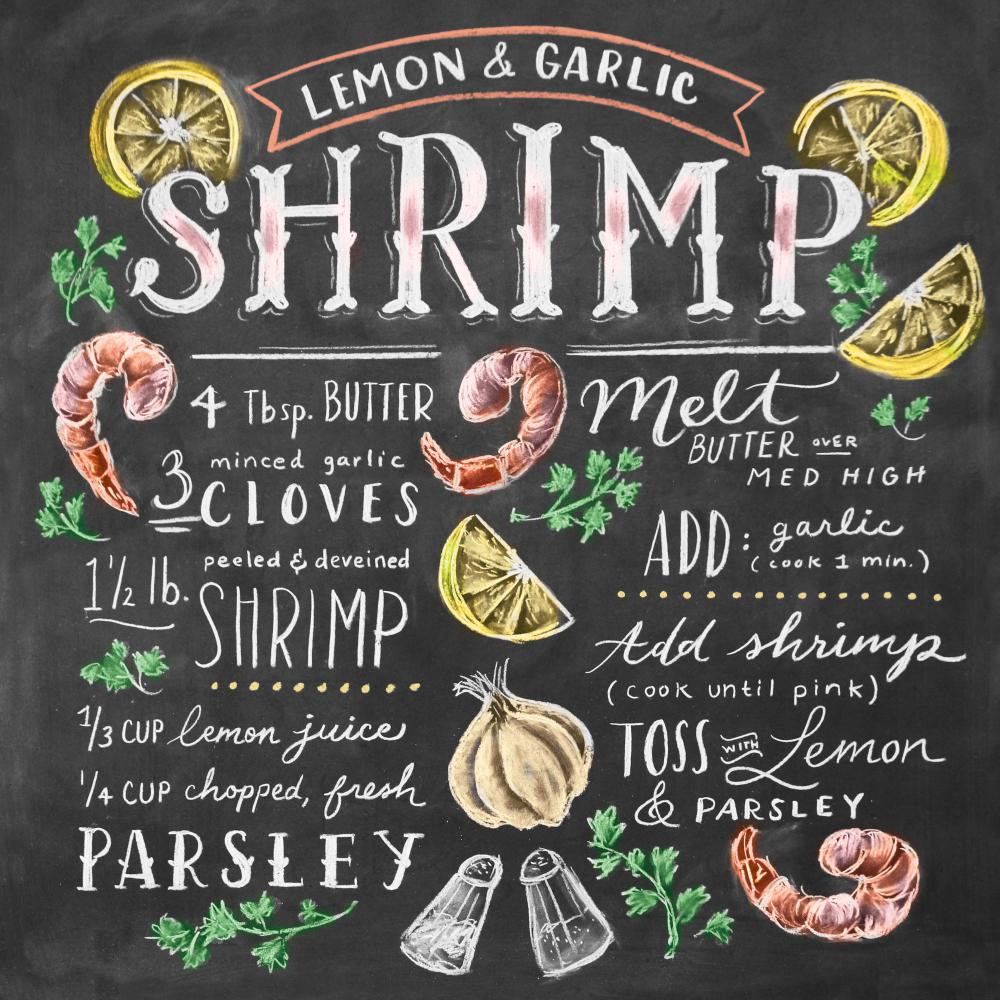 LEMON & GARLIC
SHRIMP
4 Tbsp. BUTTER
3 minced garlic
CLOVES
1 1/2 lb. peeled & deveined
SHRIMP
1/3 CUP lemon juice
1/4 CUP chopped, fresh
PARSLEY
Melt
BUTTER OVER
MED HIGH
ADD: garlic
(cook 1 min.)
Add shrimp
(cook until pink)
TOSS WITH Lemon
& PARSLEY